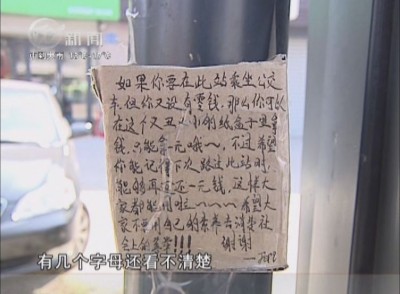 新闻
如果你要在此站乘坐公交
车,但你又没有零钱,那么你可以
在这个又丑又小的纸盒子里拿
钱,只能拿一元哦~,不过希望
你能记得下次路过此站时,
能够再还一元钱,这样大
家都能用啦~~~ 希望大
家不要用自己的素养去
会上的!!! 谢谢
有几个字母还看不清楚